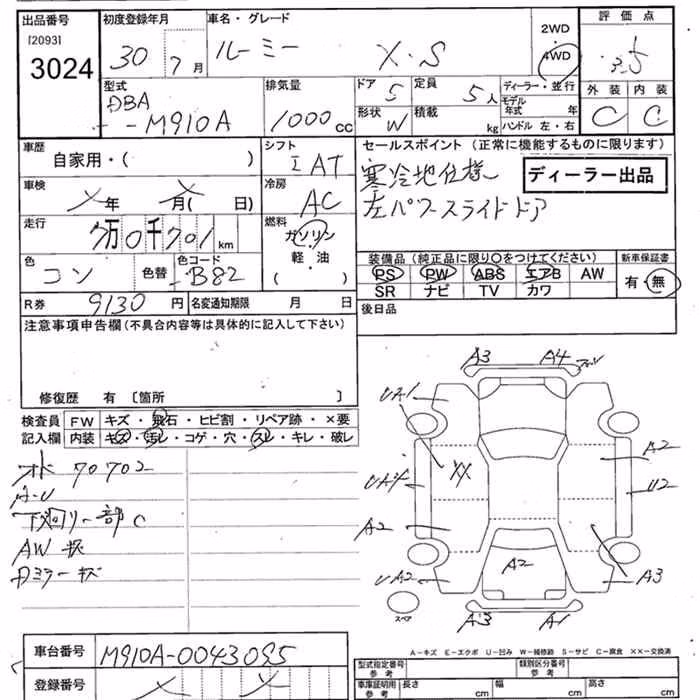 出品番号 初度登録年月 車名・グレード 2WD 4WD 評価点
[2093] 30 7月 ルーミー X・S 3.5
3024
型式 排気量 ドア 定員 ディーラー・並行 外装 内装
DBA 5 5人 モデル年式 年 C C
-M910A 1000cc 形状 W 積載 kg ハンドル 左・右
車歴 シフト セールスポイント (正常に機能するものに限ります)
自家用・( ) IAT 寒冷地仕様 ディーラー出品
車検 冷房 左パワースライドドア
年 月( 日) AC
走行 燃料
7万0千701km ガソリン
軽・油
( )
装備品 (純正品に限り○をつけてください) 新車保証書
色 色替 色コード PS PW ABS エアB AW 有・無
コン B82 SR ナビ TV カワ
R券 9130円 名変通知期限 月 日 後日品
注意事項申告欄 (不具合内容等は具体的に記入して下さい)
修復歴 有 〔箇所 〕
検査員 FW キズ・飛石・ヒビ割・リペア跡・×要
記入欄 内装 キズ・汚レ・コゲ・穴・スレ・キレ・破レ
オド 70702
A-U
下廻リ一部C
AW キズ
Dミラーキズ
A3 A4
UA1
A2
XX
U2
A2
A2
UA2 A3
スペア
A3 A1
A-キズ E-エクボ U-凹み W-補修跡 S-サビ C-腐食 XX-交換済
車台番号 M910A-0043095
登録番号
型式指定番号 参考 類別区分番号 参考
車庫証明用 参考 長さ cm 幅 cm 高さ cm